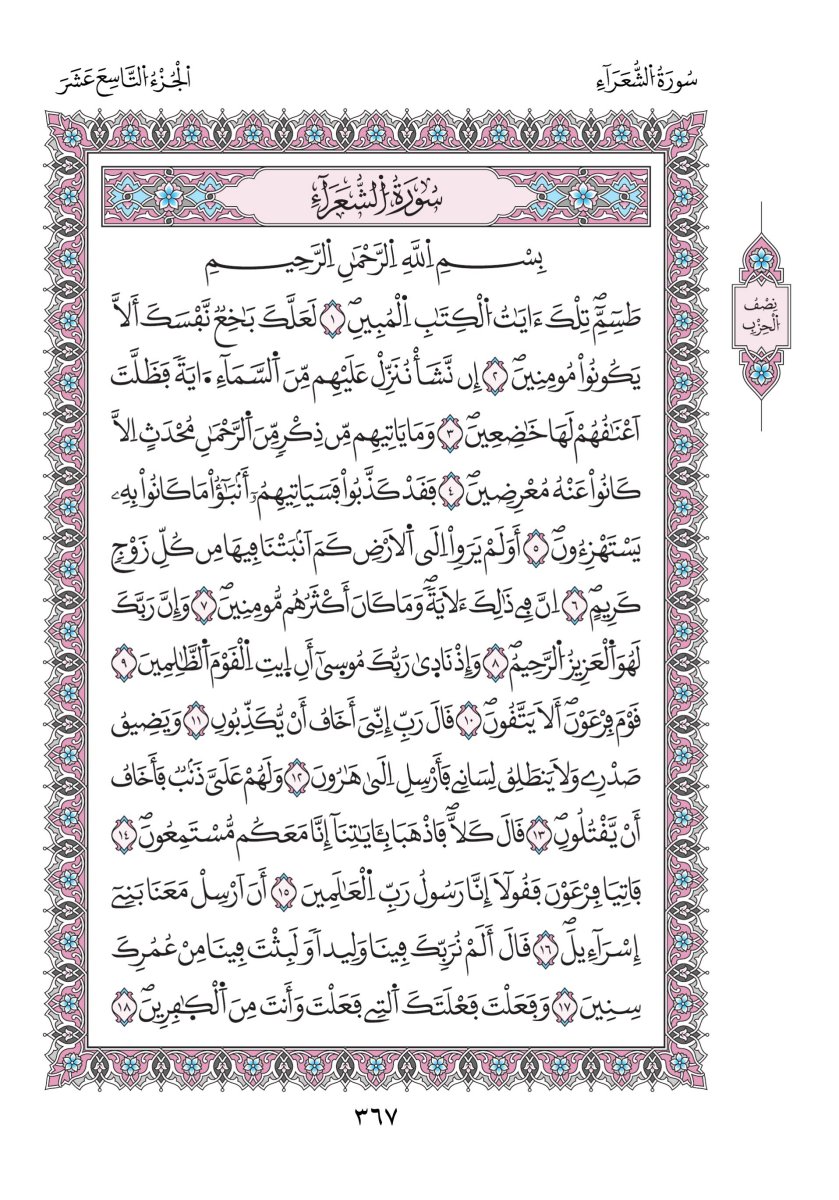 سُورَةُ الشُّعَرَآءِ
اَلْجُزْءُ التَّاسِعَ عَشَرَ
سُورَةُ الشُّعَرَآءِ
نِصْفُ
اَلْحِزْبِ
بِسْمِ اِ۬للَّهِ اِ۬لرَّحْمَٰنِ اِ۬لرَّحِيمِ
طَسِٓمِّٓۖ تِلْكَ ءَايَٰتُ اُ۬لْكِتَٰبِ اِ۬لْمُبِينِۖ ١ لَعَلَّكَ بَٰخِعٞ نَّفْسَكَ أَلَّا
يَكُونُواْ مُومِنِينَۖ ٢ إِن نَّشَأْ نُنَزِّلْ عَلَيْهِم مِّنَ اَ۬لسَّمَآءِ ءَايَةٗ فَظَلَّتَ
اَعْنَٰقُهُمْ لَهَا خَٰضِعِينَۖ ٣ وَمَا يَاتِيهِم مِّن ذِكْرٖ مِّنَ اَ۬لرَّحْمَٰنِ مُحْدَثٍ اِلَّا
كَانُواْ عَنْهُ مُعْرِضِينَۖ ٤ فَقَدْ كَذَّبُواْ فَسَيَاتِيهِمُۥٓ أَنۢبَٰٓؤُاْ مَا كَانُواْ بِهِۦ
يَسْتَهْزِءُونَۖ ٥ أَوَلَمْ يَرَوِاْ اِلَي اَ۬لَارْضِ كَمَ اَنۢبَتْنَا فِيهَا مِن كُلِّ زَوْجٖ
كَرِيمٍۖ ٦ اِنَّ فِے ذَٰلِكَ ءَلَايَةٗۖ وَمَا كَانَ أَكْثَرُهُم مُّومِنِينَۖ ٧ وَإِنَّ رَبَّكَ
لَهُوَ اَ۬لْعَزِيزُ اُ۬لرَّحِيمُۖ ٨ وَإِذْ نَادٜىٰ رَبُّكَ مُوسٜىٰٓ أَنِ اِ۪يتِ اِ۬لْقَوْمَ اَ۬لظَّٰلِمِينَ ٩
قَوْمَ فِرْعَوْنَۖ أَلَا يَتَّقُونَۖ ١٠ قَالَ رَبِّ إِنِّيَ أَخَافُ أَنْ يُّكَذِّبُونِ ١١ وَيَضِيقُ
صَدْرِے وَلَا يَنطَلِقُ لِسَانِے فَأَرْسِلِ اِلَيٰ هَٰرُونَ ١٢ وَلَهُمْ عَلَيَّ ذَنۢبٞ فَأَخَافُ
أَنْ يَّقْتُلُونِۖ ١٣ قَالَ كَلَّاۖ فَاذْهَبَا بِـَٔايَٰتِنَآ إِنَّا مَعَكُم مُّسْتَمِعُونَۖ ١٤
فَاتِيَا فِرْعَوْنَ فَقُولَآ إِنَّا رَسُولُ رَبِّ اِ۬لْعَٰلَمِينَ ١٥ أَنَ اَرْسِلْ مَعَنَا بَنِےٓ
إِسْرَآءِيلَۖ ١٦ قَالَ أَلَمْ نُرَبِّكَ فِينَا وَلِيداٗ وَلَبِثْتَ فِينَا مِنْ عُمُرِكَ
سِنِينَ ١٧ وَفَعَلْتَ فَعْلَتَكَ اَ۬لتِے فَعَلْتَ وَأَنتَ مِنَ اَ۬لْكٰ۪فِرِينَۖ ١٨
٣٦٧